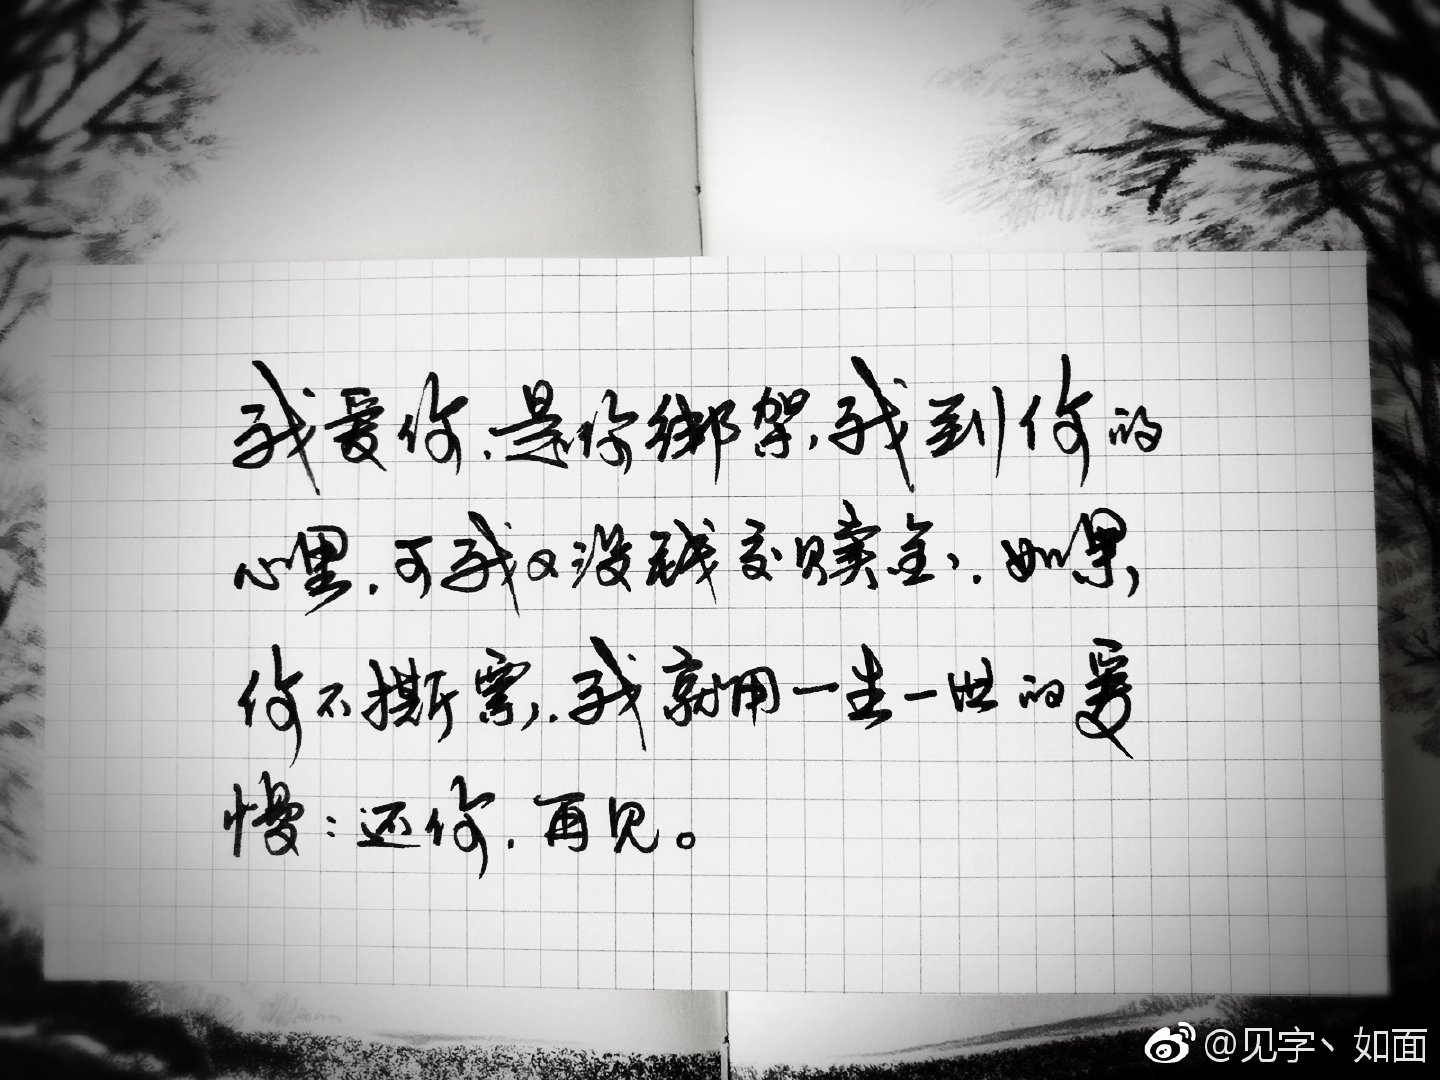 我爱你，是你绑架，我到你的
心里，可我又没钱交赎金，如果，
你不撕票，我就用一生一世的爱
慢：还你，再见。
@见字丶如面